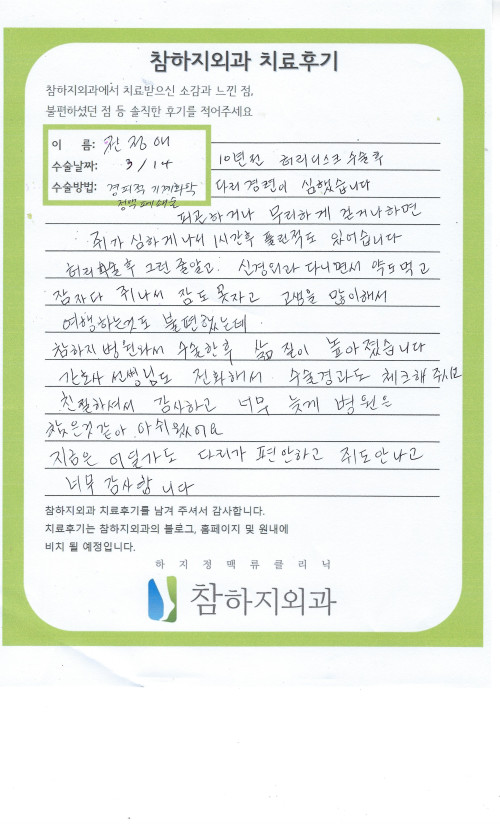 참하지외과 치료후기
참하지외과에서 치료받으신 소감과 느낀 점,
불편하셨던 점 등 솔직한 후기를 적어주세요
이 름: 전정애
수술날짜: 3/14
수술방법: 경피적 기계화학
정맥폐쇄술
10년전 허리디스크 수술후
다리경련이 심했습니다
피곤하거나 무리하게 걷거나하면
쥐가 심하게 나서 1시간후 풀린적도 있어습니다
허리수술후 그런줄알고. 신경외과 다니면서 약도먹고
잠자다 쥐나서 잠도 못자고 고생을 많이해서
여행하는것도 불편했는데.
참하지병원와서 수술한후 삶 질이 높아졌습니다
간호사 선생님도 전화해서. 수술경과도 체크해 주시고
친절하셔서 감사하고 너무 늦게 병원은
찾은것같아 아쉬웠어요
지금은 이틀가도 다리가 편안하고 쥐도안나고
너무 감사합니다
참하지외과 치료후기를 남겨 주셔서 감사합니다.
치료후기는 참하지외과의 블로그, 홈페이지 및 원내에
비치 될 예정입니다.
하지정맥류클리닉
참하지외과